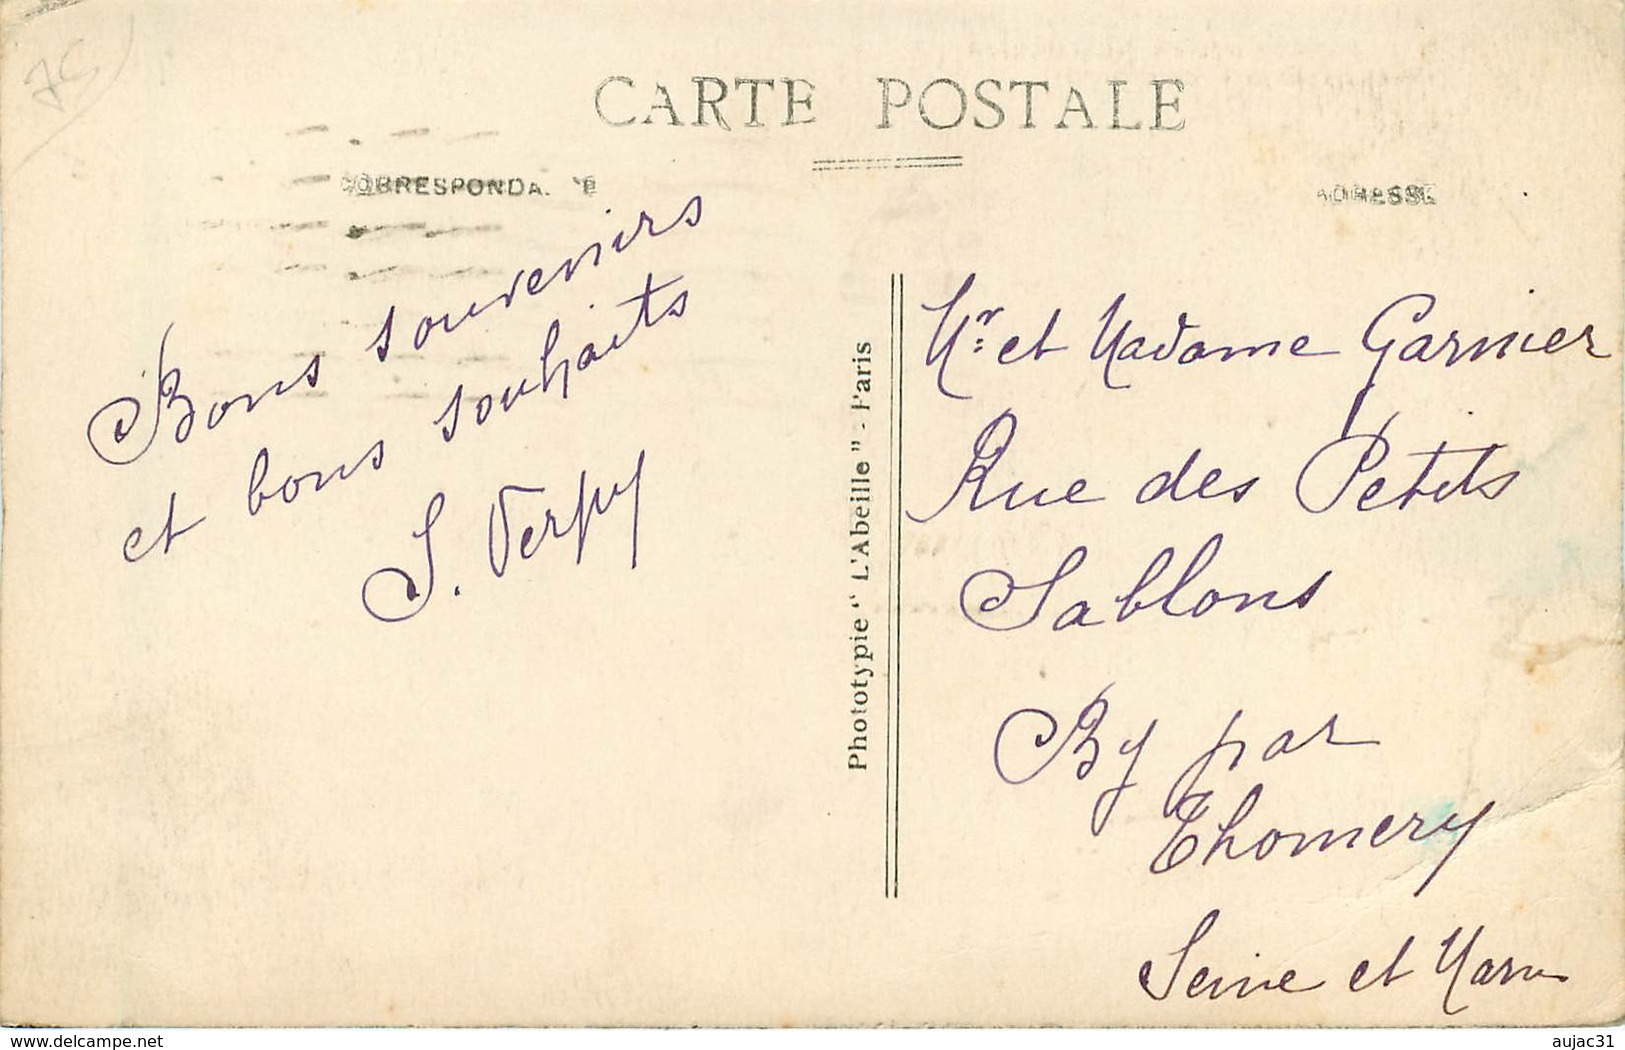 CARTE POSTALE
CORRESPONDANCE
ADRESSE
Bons souvenirs
et bons souhaits
Phototypie "L'Abeille" - Paris
Mr. et Madame Garnier
Rue des Petits
Sablons
By par
Thomery
Seine et Marne
delcampe.net
aujac31